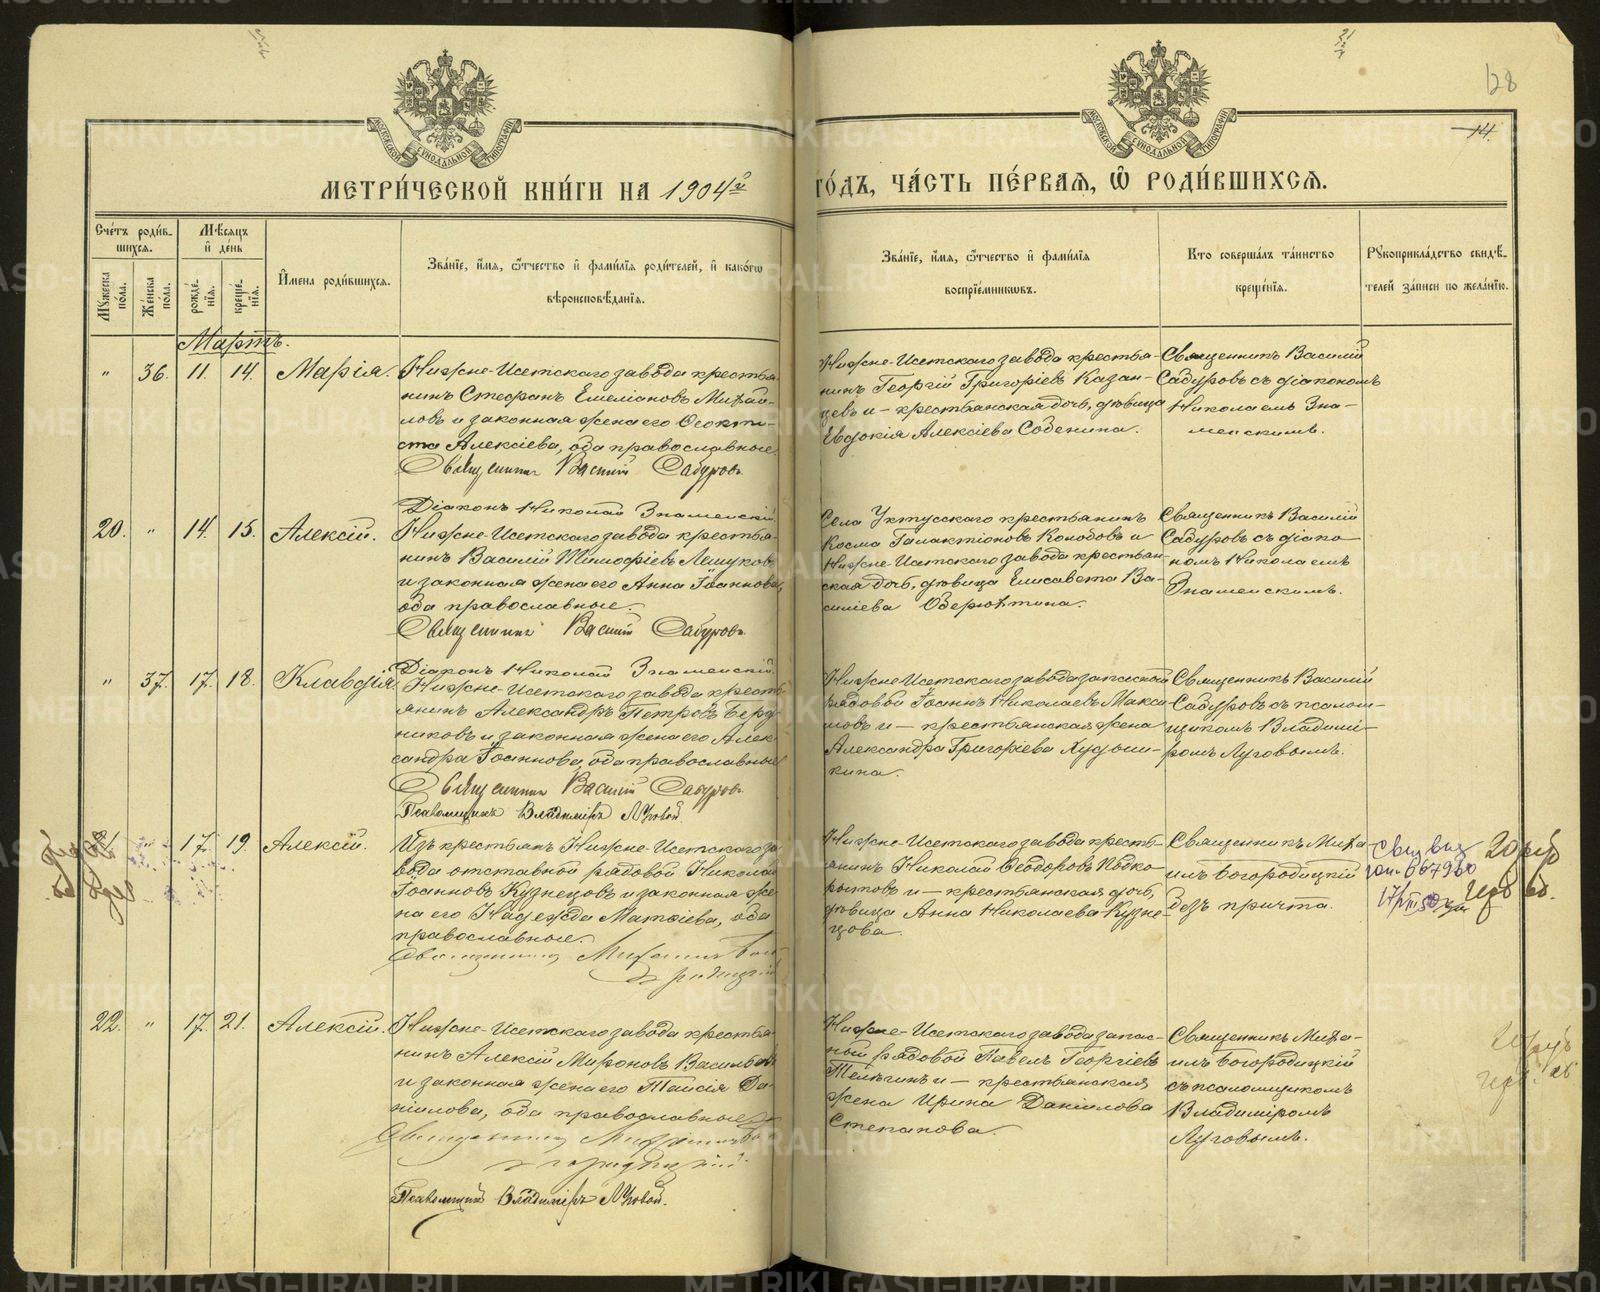 128
14.
МЕТРИ́ЧЕСКОЙ КНИ́ГИ НА 1904й
ГО́ДЪ, ЧА́СТЬ ПЕ́РВАЯ, Ѡ҆ РОДИ́ВШИХСЯ.
Сче́тъ роди́в-
шихся.
Мꙋ́жеска по́ла.
Же́нска пола.
Мѣ́сяцъ и҆ де́нь
рожде́-
нїя.
креще́-
нїя.
И҆мена роди́вшихся.
Зва́нїе, и҆́мя, ѻ҆́тчество и҆ фами́лїя роди́телей, и҆ како́гѡ
вѣроисповѣ́данїя.
Зва́нїе, и҆́мя, ѻ҆́тчество и҆ фами́лїя
воспрїе́мникѡвъ.
Кто соверша́лъ та́инство
креще́нїя.
Рꙋкоприкла́дство свидѣ́-
телей за́писи по жела́нїю.
Мартъ.
" 36. 11. 14. Марія.
Нижне-Исетскаго завода крестья-
нинъ Стефанъ Емеліановъ Михай-
ловъ и законная жена его Ѳеокти-
ста Алексіева, оба православные
Священникъ Василій Сабуровъ
Діаконъ Николай Знаменскій
Нижне-Исетскаго завода крестья-
нинъ Георгій Григоріевъ Казан-
цевъ и – крестьянская дочь, дѣвица
Евдокія Алексіева Собенина.
Священникъ Василій
Сабуровъ съ діакономъ
Николаемъ Зна-
менскимъ.
20. " 14. 15. Алексій.
Нижне-Исетскаго завода крестья-
нинъ Василій Тимофіевъ Лешуковъ
и законная жена его Анна Іоаннова,
оба православные.
Священникъ Василій Сабуровъ
Діаконъ Николай Знаменскій
Села Уктусскаго крестьянинъ
Косма Галактіоновъ Колобовъ и
Нижне-Исетскаго завода крестьян-
ская дочь, дѣвица Елисавета Ва-
силіева
Священникъ Василій
Сабуровъ съ діако-
номъ Николаемъ
Знаменскимъ.
" 37. 17. 18. Клавдія.
Нижне-Исетскаго завода кресть-
янинъ Александръ Петровъ Берд-
никовъ и законная жена его Алек-
сандра Іоаннова, оба православные
Священникъ Василій Сабуровъ
Псаломщикъ Владиміръ Луговой
Нижне-Исетскаго завода запасной
рядовой Іоаннъ Николаевъ Макси-
мовъ и – крестьянская жена
Александра Григоріева
Священникъ Василій
Сабуровъ съ псалом-
щикомъ Владимі-
ромъ Луговымъ.
21. 17. 19. Алексій.
Изъ крестьянъ Нижне-Исетскаго за-
вода отставной рядовой Николай
Іоанновъ Кузнецовъ и законная же-
на его Надежда Матѳіева, оба
православные.
Священникъ Михаилъ Бого-
родицкій
Нижне-Исетскаго завода кресть-
янинъ Николай Ѳеодоровъ Подко-
рытовъ и – крестьянская дочь,
дѣвица Анна Николаева Кузне-
цова.
Священникъ Миха-
илъ Богородицкій
безъ причта.
22. " 17. 21. Алексій.
Нижне-Исетскаго завода крестья-
нинъ Алексій Мироновъ Васильевъ
и законная жена его Таисія Да-
ніилова, оба православные
Священникъ Михаилъ Бо-
городицкій
Псаломщикъ Владиміръ Луговой.
Нижне-Исетскаго завода запас-
ной рядовой Павелъ Георгіевъ
Телѣгинъ и – крестьянская
жена Ирина Даніилова
Степанова.
Священникъ Миха-
илъ Богородицкій
съ псаломщикомъ
Владиміромъ
Луговымъ.
METRIKI.GASO-URAL.RU